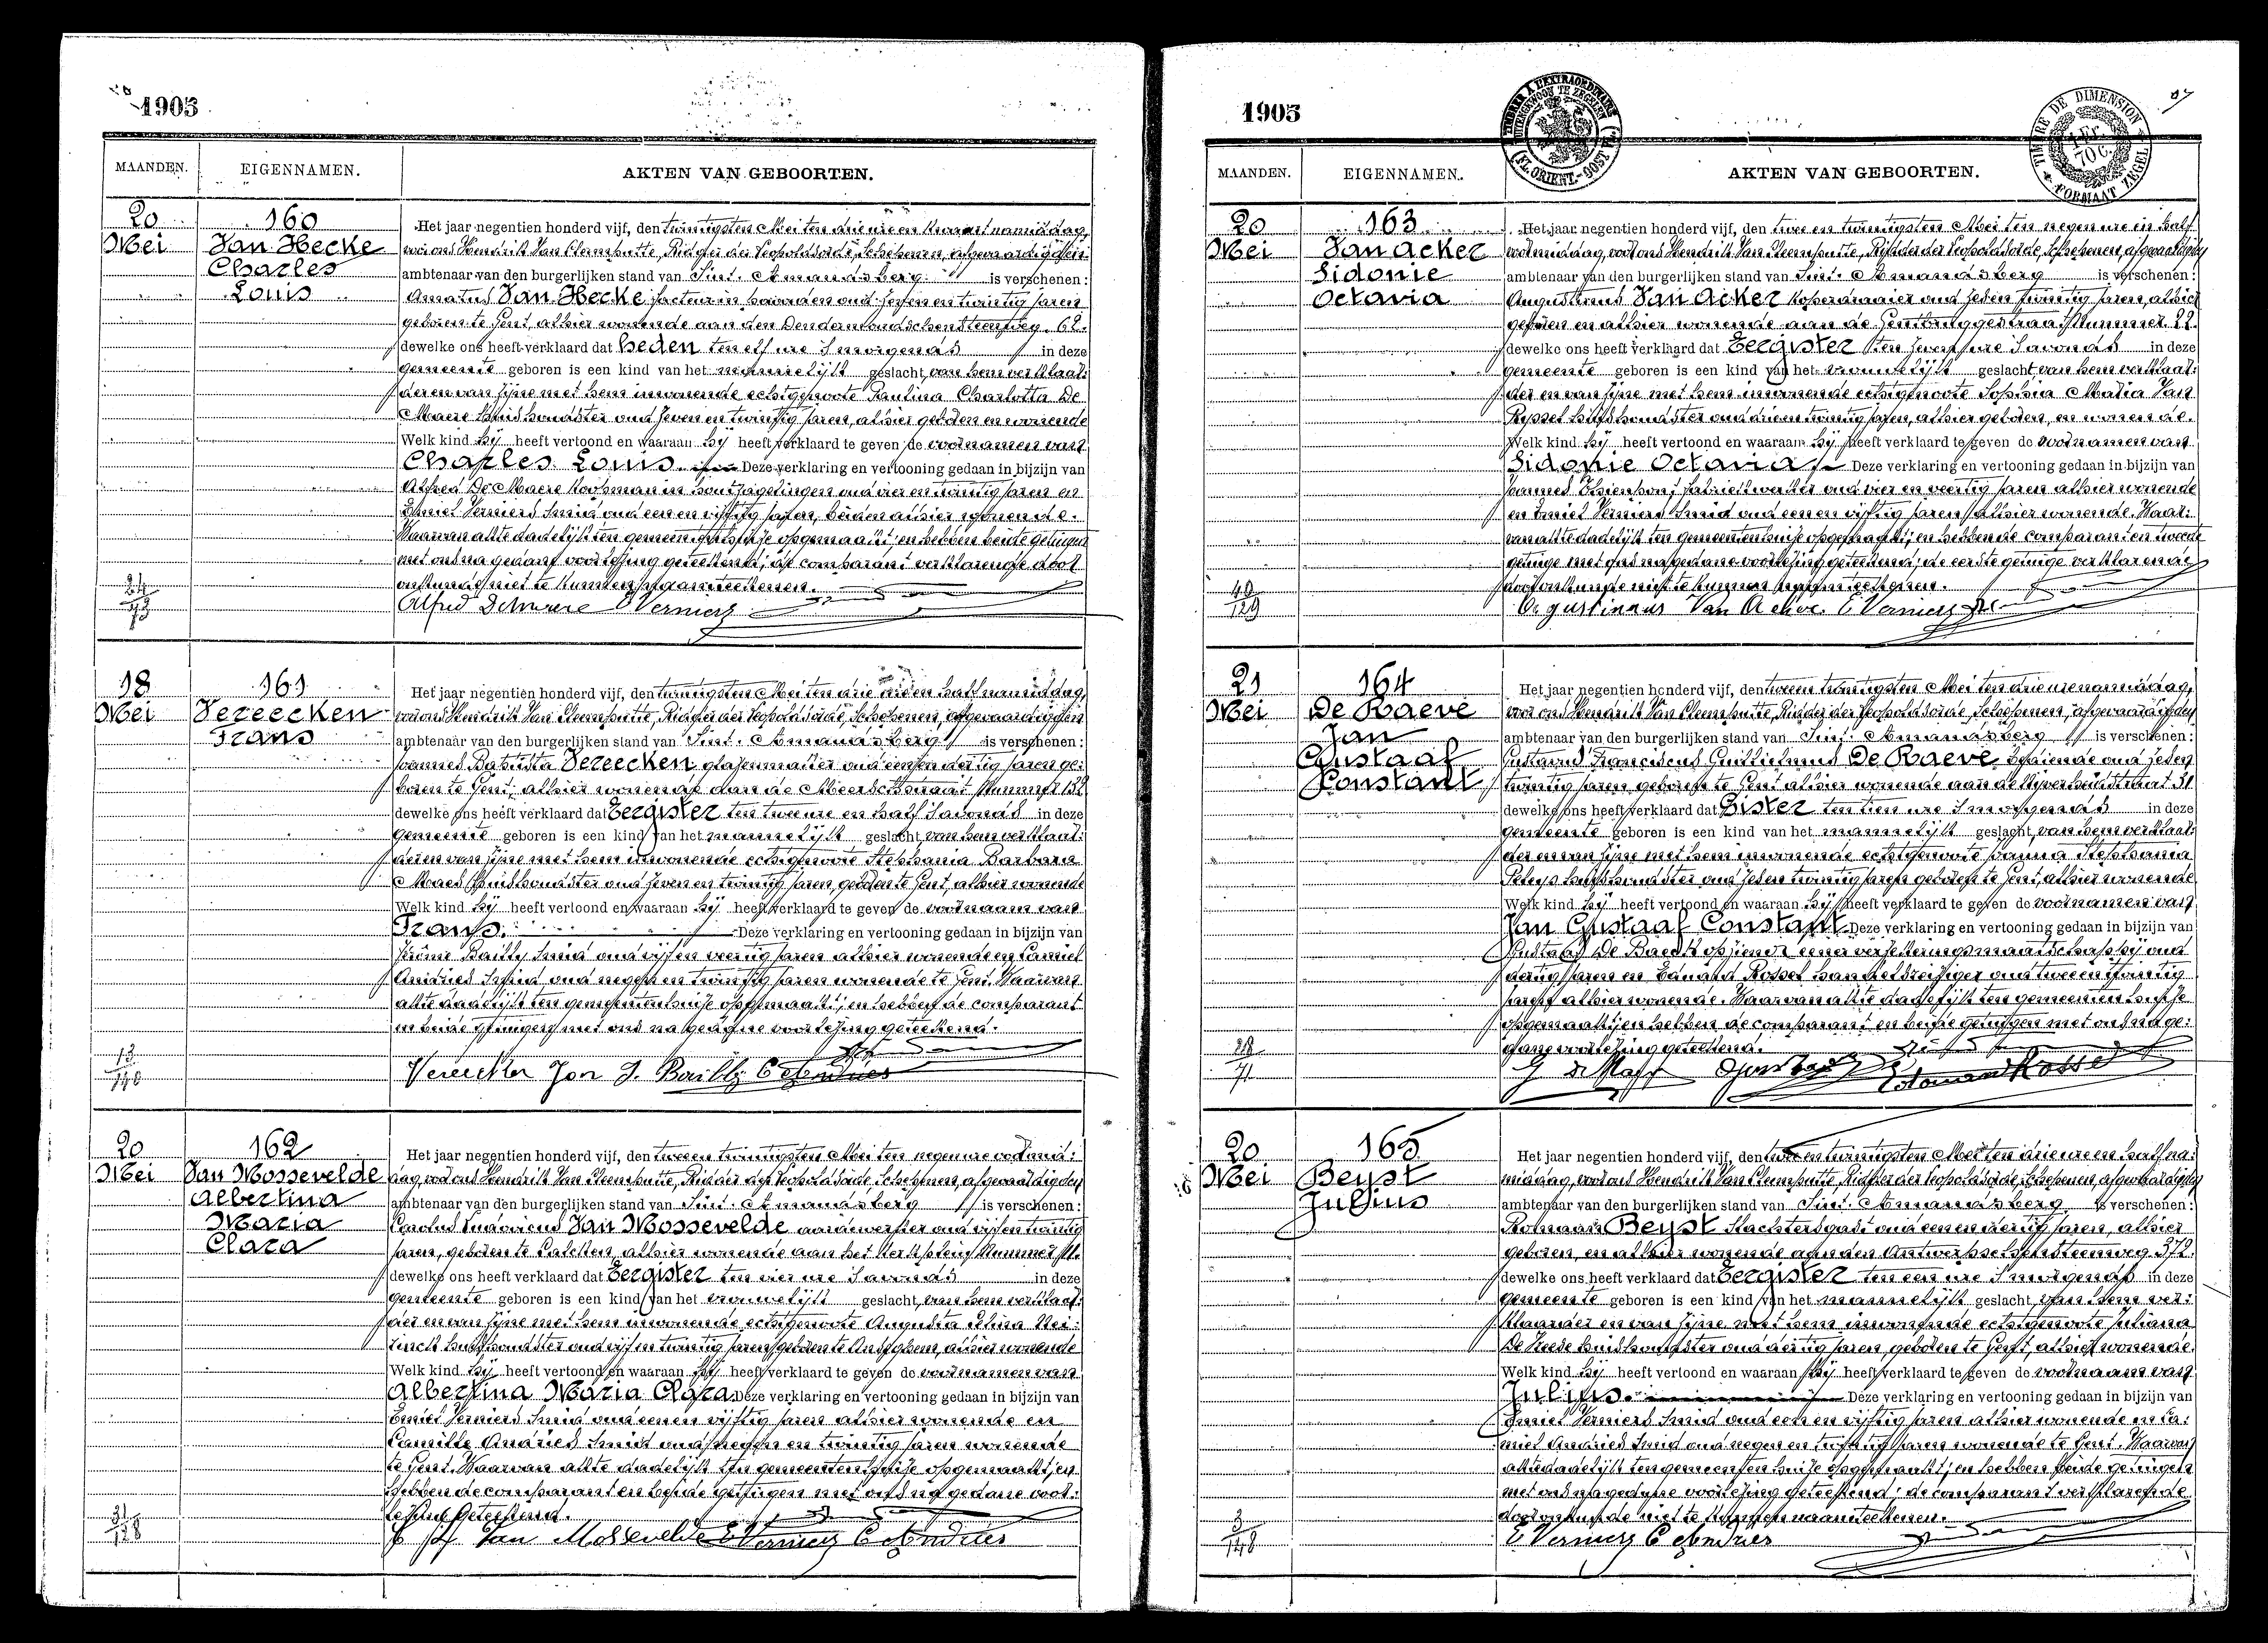 1905
MAANDEN. EIGENNAMEN. AKTEN VAN GEBOORTEN.
20 Mei
160
Van Hecke
Charles
Louis
Het jaar negentien honderd vijf, den twintigsten Mei ten drie ure en kwart namiddag,
voor ons Hendrik Van Cleemputte, Ridder der Leopoldsorde, Schepenen, afgevaardigden
ambtenaar van den burgerlijken stand van Sint. Amandsberg is verschenen:
Amatus Van Hecke facteur in oud zes en twintig jaren
geboren te Gent, alhier wonende aan den Dendermondschensteenweg. 62.
dewelke ons heeft verklaard dat heden ten elf ure 's morgends in deze
gemeente geboren is een kind van het mannelijk geslacht, van hem verklaar:
der en van zijne met hem inwonende echtgenoote Paulina Charlotta De
Maere huishoudster oud zeven en twintig jaren, alhier geboren en wonende
Welk kind hij heeft vertoond en waaraan hij heeft verklaard te geven de voornamen van
Charles Louis. Deze verklaring en vertooning gedaan in bijzijn van
Alfred De Maere koopman in oud vier en twintig jaren en
Emiel Verniers Smid oud een en vijftig jaren, beiden alhier wonende.
Waarvan akte dadelijk ten gemeentenhuize opgemaakt; en hebben beide getuigen
met ons na gedane voorlezing geteekend; de comparant verklarende door
onkunde niet te kunnen naamteekenen.
24/73
Alfred Demaere E Verniers
18 Mei
161
Vereecken
Frans
Het jaar negentien honderd vijf, den twintigsten Mei ten drie ure en half namiddag,
voor ons Hendrik Van Cleemputte, Ridder der Leopoldsorde, Schepenen, afgevaardigden
ambtenaar van den burgerlijken stand van Sint. Amandsberg is verschenen:
Joannes Baptista Vereecken glazenmaker oud een en dertig jaren ge:
boren te Gent, alhier wonende aan de Meerschstraat Nummer 132
dewelke ons heeft verklaard dat Eergister ten twee ure en half 's avonds in deze
gemeente geboren is een kind van het mannelijk geslacht, van hem verklaar:
der en van zijne met hem inwonende echtgenoote Stephania Barbara
Maes huishoudster oud zeven en twintig jaren, geboren te Gent, alhier wonende
Welk kind hij heeft vertoond en waaraan hij heeft verklaard te geven de voornaam van
Frans. Deze verklaring en vertooning gedaan in bijzijn van
Jérôme Bailly Smid oud vijf en veertig jaren alhier wonende en Camiel
Andries Smid oud negen en twintig jaren wonende te Gent. Waarvan
akte dadelijk ten gemeentenhuize opgemaakt; en hebben de comparant
en beide getuigen met ons na gedane voorlezing geteekend.
13/140
Vereecken Jan J. Bailly C Andries
20 Mei
162
Van Mossevelde
Albertina
Maria
Clara
Het jaar negentien honderd vijf, den twee en twintigsten Mei ten negen ure voormid:
dag, voor ons Hendrik Van Cleemputte, Ridder der Leopoldsorde, Schepenen, afgevaardigden
ambtenaar van den burgerlijken stand van Sint. Amandsberg is verschenen:
Carolus Ludovicus Van Mossevelde aardewerker oud vijf en twintig
jaren, geboren te Calcken, alhier wonende aan het Kerkplein Nummer
dewelke ons heeft verklaard dat Eergister ten vier ure 's avonds in deze
gemeente geboren is een kind van het vrouwelijk geslacht, van hem verklaar:
der en van zijne met hem inwonende echtgenoote Augusta Elina Nei:
rinck huishoudster oud vijf en twintig jaren geboren te Anseghem, alhier wonende
Welk kind hij heeft vertoond en waaraan hij heeft verklaard te geven de voornamen van
Albertina Maria Clara Deze verklaring en vertooning gedaan in bijzijn van
Emiel Verniers Smid oud een en vijftig jaren alhier wonende en
Camille Andries Smid oud negen en twintig jaren wonende
te Gent. Waarvan akte dadelijk ten gemeentenhuize opgemaakt; en
hebben de comparant en beide getuigen met ons na gedane voor:
lezing geteekend.
31/128
Van Mossevelde E Verniers C Andries
1905
TIMBRE A L'EXTRAORDINAIRE
BUITENGEWOON TE ZEGELEN
(FL. ORIENT.-OOST VL.)
TIMBRE DE DIMENSION
1 Fr. 70 c.
FORMAAT ZEGEL
MAANDEN. EIGENNAMEN. AKTEN VAN GEBOORTEN.
20 Mei
163
Van Acker
Sidonie
Octavia
Het jaar negentien honderd vijf, den twee en twintigsten Mei ten negen ure en half
voormiddag, voor ons Hendrik Van Cleemputte, Ridder der Leopoldsorde, Schepenen, afgevaardigden
ambtenaar van den burgerlijken stand van Sint. Amandsberg is verschenen:
Augustinus Van Acker koperdraaier oud zes en twintig jaren, alhier
geboren en alhier wonende aan de Gentbruggestraat Nummer. 22.
dewelke ons heeft verklaard dat Eergister ten zeven ure 's avonds in deze
gemeente geboren is een kind van het vrouwelijk geslacht, van hem verklaar:
der en van zijne met hem inwonende echtgenoote Sophia Maria Van
Ryssel huishoudster oud drie en twintig jaren, alhier geboren, en wonende.
Welk kind hij heeft vertoond en waaraan hij heeft verklaard te geven de voornamen van
Sidonie Octavia Deze verklaring en vertooning gedaan in bijzijn van
Joannes fabriekwerker oud vier en veertig jaren alhier wonende
en Emiel Verniers Smid oud een en vijftig jaren alhier wonende. Waar:
van akte dadelijk ten gemeentenhuize opgemaakt; en hebben de comparant en tweede
getuige met ons na gedane voorlezing geteekend; de eerste getuige verklarende
door onkunde niet te kunnen naamteekenen.
49/129
Augustinus Van Acker E Verniers
21 Mei
164
De Raeve
Jan
Gustaaf
Constant
Het jaar negentien honderd vijf, den twee en twintigsten Mei ten drie ure namiddag,
voor ons Hendrik Van Cleemputte, Ridder der Leopoldsorde, Schepenen, afgevaardigden
ambtenaar van den burgerlijken stand van Sint. Amandsberg is verschenen:
Gustavus Franciscus Guillielmus De Raeve bediende oud zes en
twintig jaren geboren te Gent alhier wonende aan de Nijverheidstraat 31
dewelke ons heeft verklaard dat Gister ten tien ure 's morgends in deze
gemeente geboren is een kind van het mannelijk geslacht, van hem verklaar:
der en van zijne met hem inwonende echtgenoote Joanna Stephania
huishoudster oud zes en twintig jaren geboren te Gent, alhier wonende
Welk kind hij heeft vertoond en waaraan hij heeft verklaard te geven de voornamen van
Jan Gustaaf Constant Deze verklaring en vertooning gedaan in bijzijn van
Gustaaf De Baedt opziener eener verzekeringsmaatschappij oud
dertig jaren en Eduard Rossel handelsreiziger oud twee en twintig
jaren alhier wonende. Waarvan akte dadelijk ten gemeentenhuize
opgemaakt; en hebben de comparant en beide getuigen met ons na ge:
dane voorlezing geteekend.
28/71
20 Mei
165
Beyst
Julius
Het jaar negentien honderd vijf, den twee en twintigsten Mei ten drie ure en half na:
middag, voor ons Hendrik Van Cleemputte, Ridder der Leopoldsorde, Schepenen, afgevaardigden
ambtenaar van den burgerlijken stand van Sint. Amandsberg is verschenen:
Romaan Beyst slachtersgast oud een en dertig jaren, alhier
geboren, en alhier wonende aan den Antwerpschensteenweg 372.
dewelke ons heeft verklaard dat Eergister ten een ure 's morgends in deze
gemeente geboren is een kind van het mannelijk geslacht, van hem ver:
klaarder en van zijne met hem inwonende echtgenoote Juliana
De Vreese huishoudster oud dertig jaren, geboren te Gent, alhier wonende.
Welk kind hij heeft vertoond en waaraan hij heeft verklaard te geven de voornaam van
Julius. Deze verklaring en vertooning gedaan in bijzijn van
Emiel Verniers Smid oud een en vijftig jaren alhier wonende en Ca:
miel Andries Smid oud negen en twintig jaren wonende te Gent. Waarvan
akte dadelijk ten gemeentenhuize opgemaakt; en hebben beide getuigen
met ons na gedane voorlezing geteekend; de comparant verklarende
door onkunde niet te kunnen naamteekenen.
3/148
E Verniers C Andries